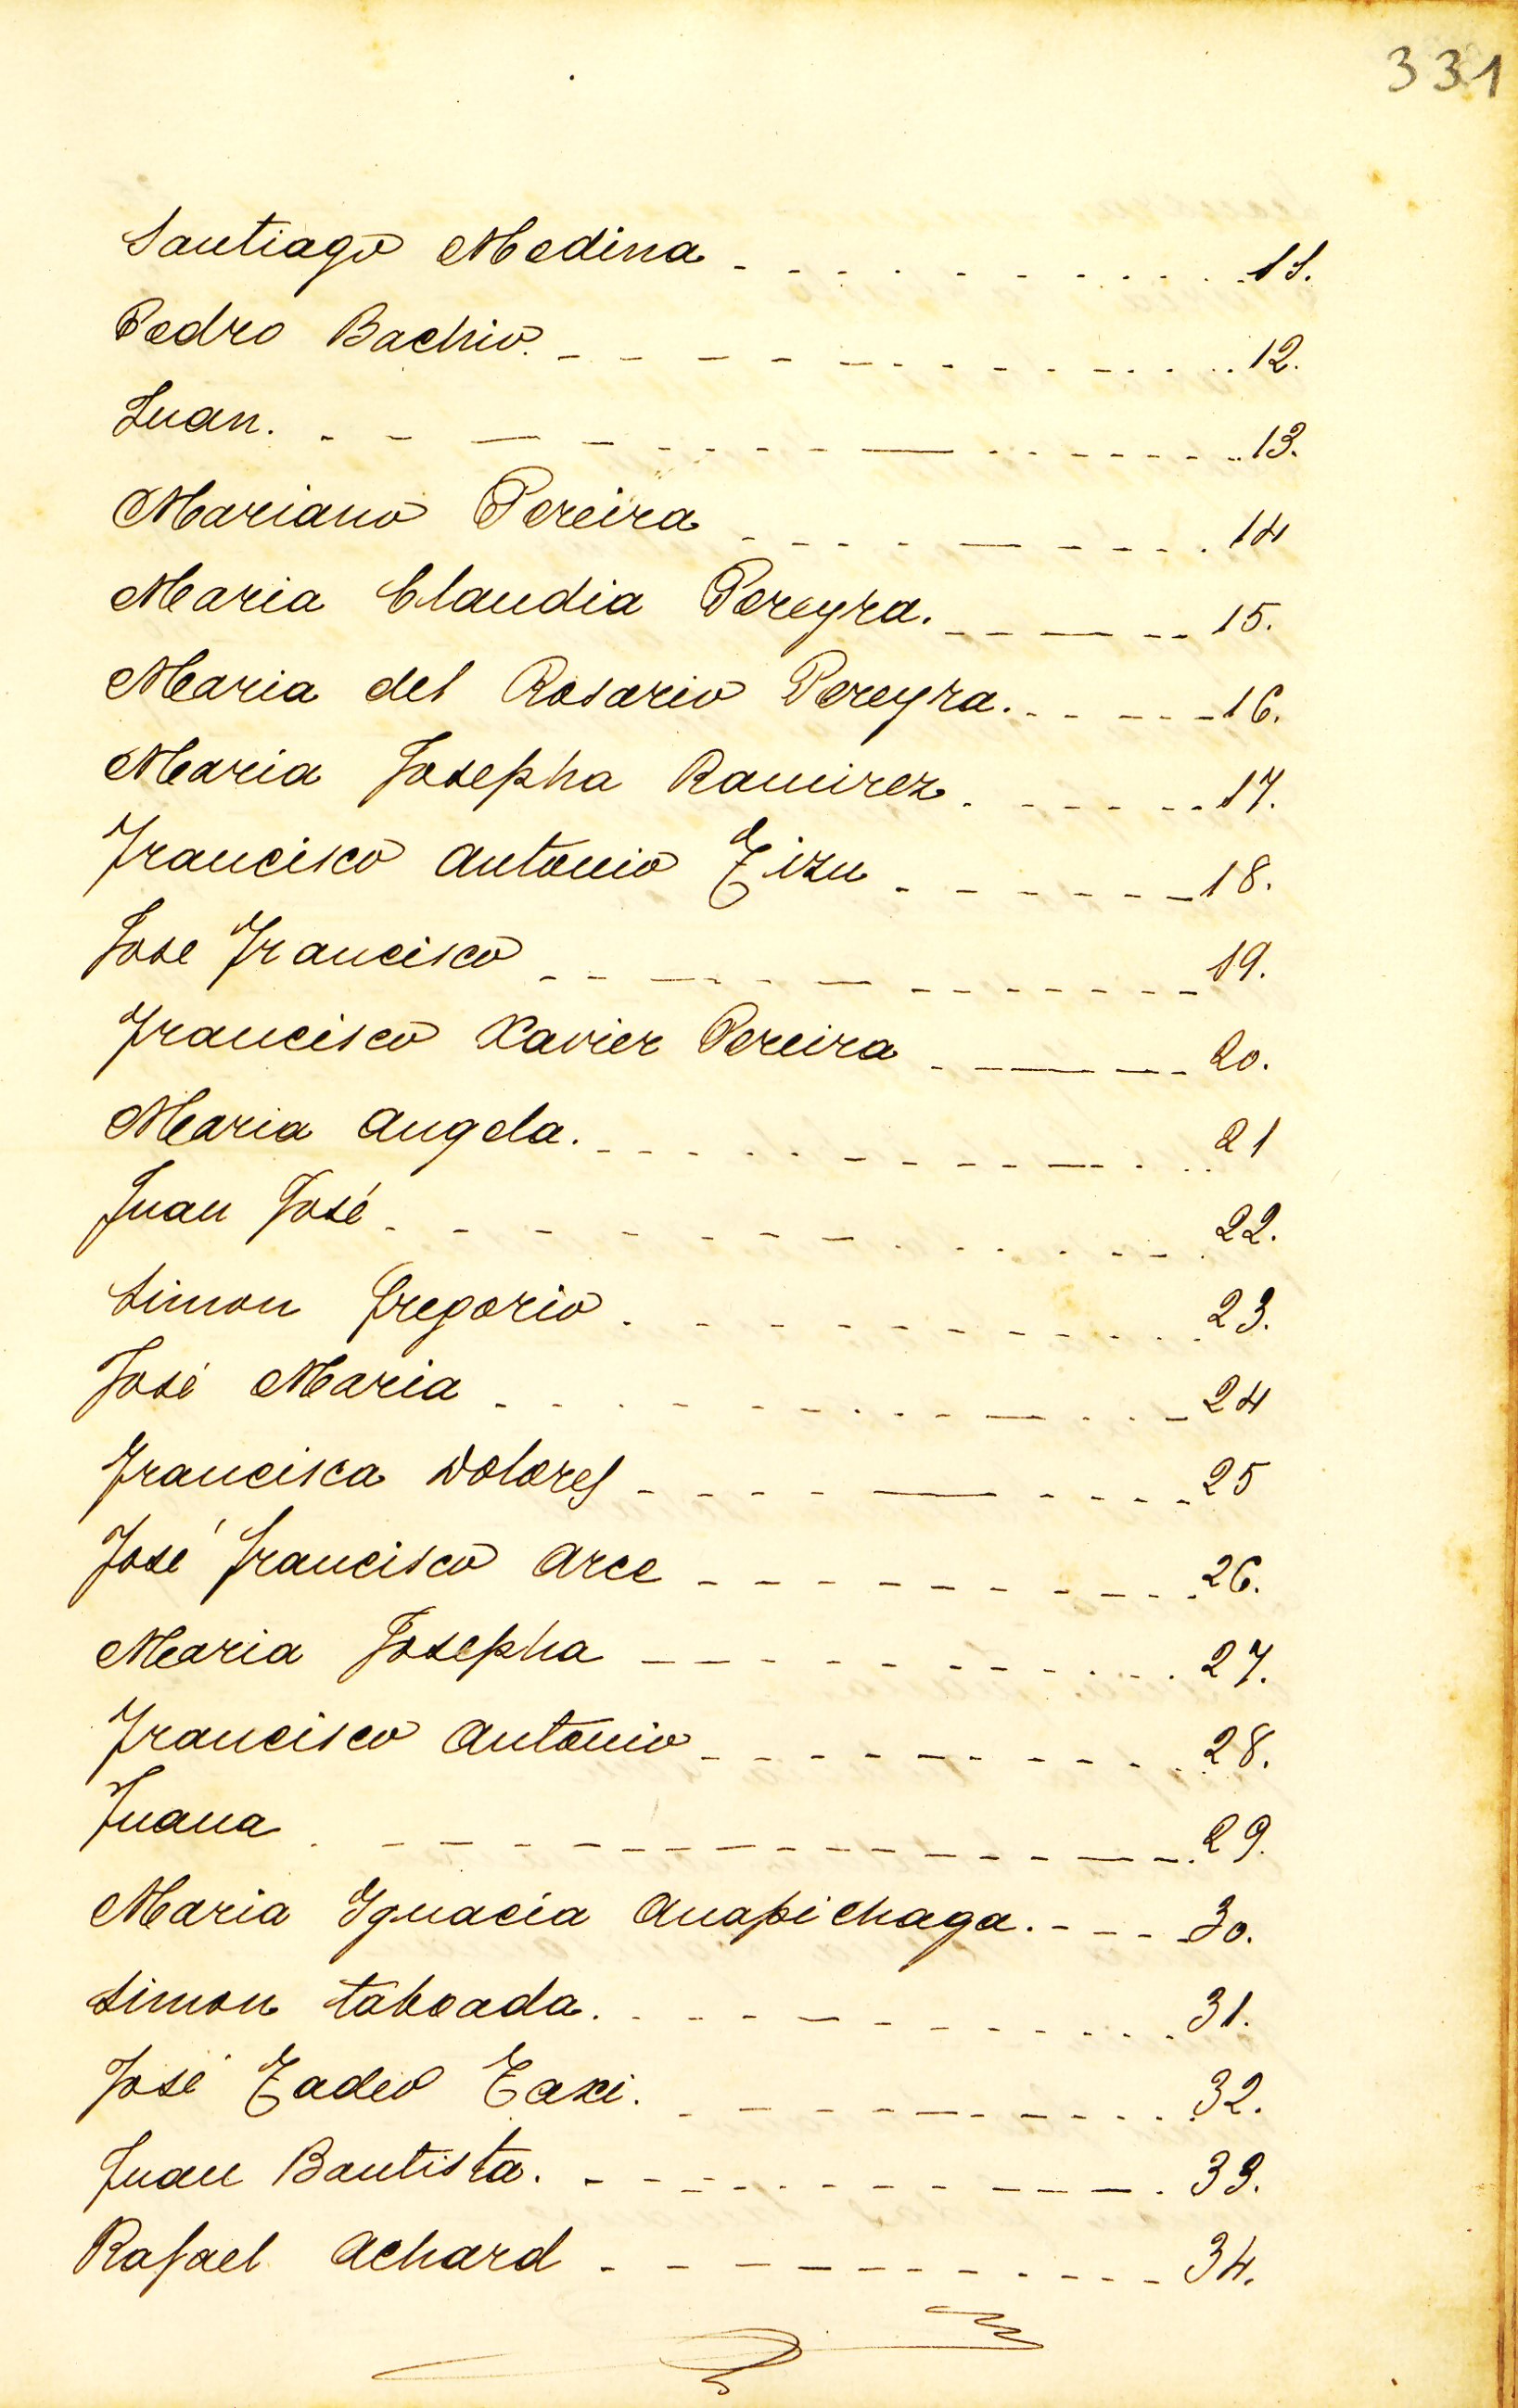 331
Santiago Medina - - - - - - - - - - 11.
Pedro Bachio. - - - - - - - - - - 12.
Juan. - - - - - - - - - - 13.
Mariano Pereira - - - - - - - - - - 14
Maria Claudia Pereyra. - - - - - 15.
Maria del Rosario Pereyra. - - - - - 16.
Maria Josepha Ramirez. - - - - - 17.
Francisco Antonio Tizu - - - - - - 18.
Jose Francisco - - - - - - - - - - 19.
Francisco Xavier Pereira - - - - - 20.
Maria Angela. - - - - - - - - - - 21
Juan José - - - - - - - - - - 22.
Simon Gregorio. - - - - - - - - - - 23.
José Maria - - - - - - - - - - 24
Francisca Dolores - - - - - - - - - - 25
José Francisco Arce - - - - - - - - - - 26.
Maria Josepha - - - - - - - - - - 27.
Francisco Antonio - - - - - - - - - - 28.
Juana - - - - - - - - - - 29.
Maria Ignacia Anapichaga. - - - - 30.
Simon taboada. - - - - - - - - - - 31.
José Tadeo Taxi. - - - - - - - - - - 32.
Juan Bautista. - - - - - - - - - - 33.
Rafael Achard - - - - - - - - - - 34.